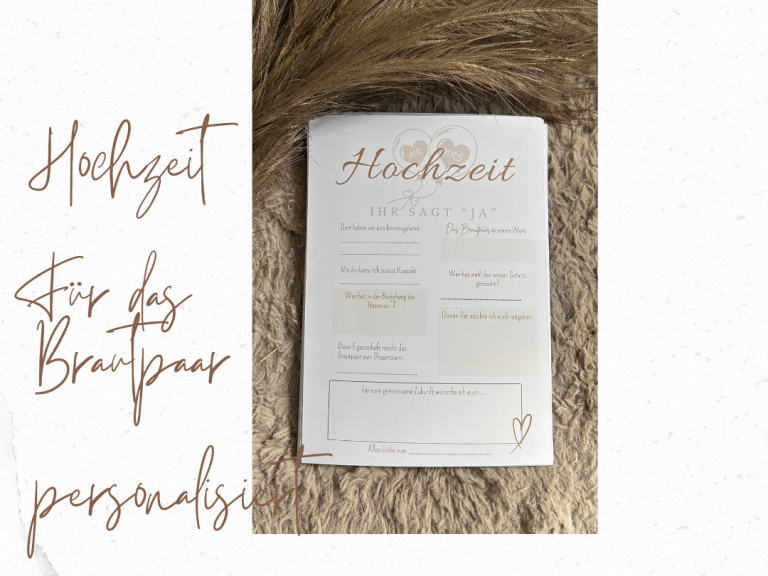 Hochzeit
Für das
Brautpaar
personalisiert
Hochzeit
IHR SAGT "JA"
Dort haben wir uns kennengelernt:
Mit dir hatte ich zuerst Kontakt:
Wer hat in der Beziehung die
Hosen an ?
Diese Eigenschaft macht das
Brautpaar zum Dreamteam:
Das Brautpaar in einem Wort:
Wer hat wohl den ersten Schritt
gemacht?
Diesen Rat möchte ich euch mitgeben:
Für eure gemeinsame Zukunft wünsche ich euch ....
Alles Liebe von